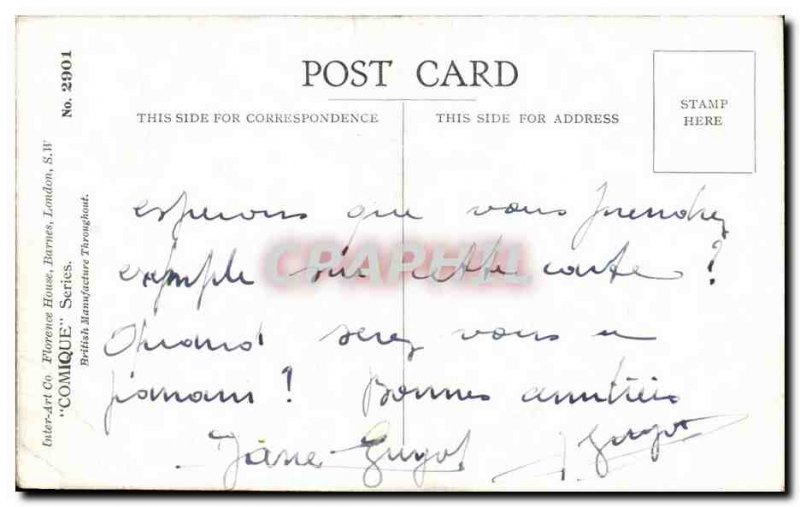 POST CARD
THIS SIDE FOR CORRESPONDENCE
THIS SIDE FOR ADDRESS
STAMP
HERE
Inter-Art Co Florence House, Barnes, London, S.W
"COMIQUE" Series.
No. 2901
British Manufacture Throughout.
CPAPHIL
esperons que vous prendrez
exemple sur cette carte ?
Quand serez vous a
! Bonnes amitiés
Jane Guyot J Guyot